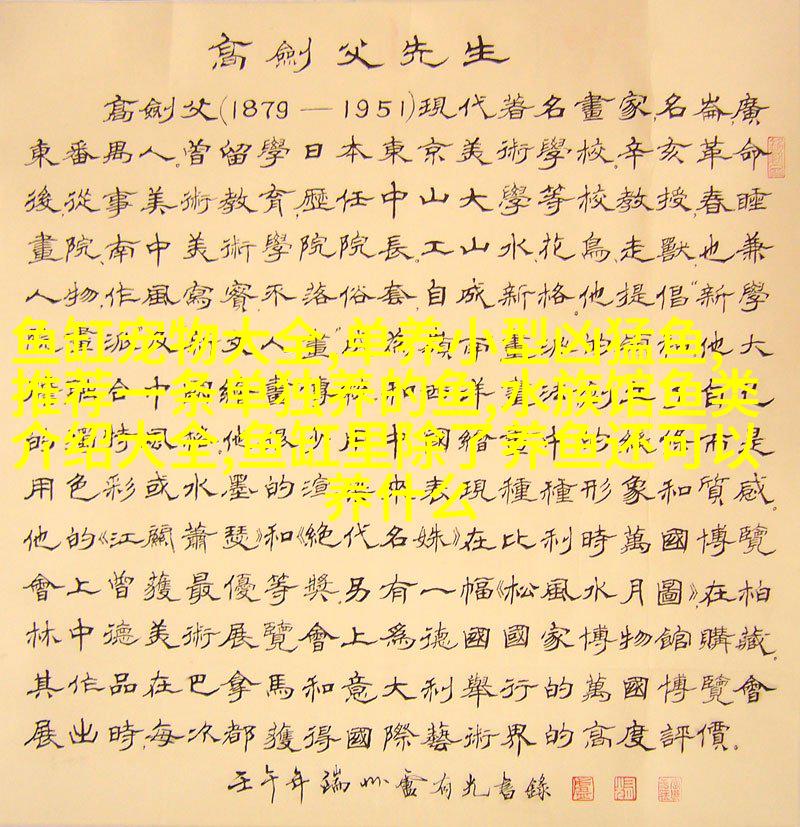 高劍父先生
高劍父(1879—1951)現代著名畫家,名崙,廣
東番禺人。曾留學日本東京美術學校。辛亥革命
後,從事美術教育,歷任中山大學等校教授,春睡
畫院、南中美術學院院長。工山水、花鳥、走獸,也兼
人物,作風寫實,不落俗套,自成新格。他提倡"新學
畫派 人畫 嶺南畫派的 他大
合中
的獨特風格。他很少用中國繪畫中的線條而是
用色彩或水墨的渲 表現種種形象和質感。
他的《江關蕭瑟》和《絕代名姝》在比利時萬國博覽
會上曾獲最優等獎。另有一幅《松風水月圖》,在柏
林中德美術展覽會上爲德國國家博物館購藏。
其作品在巴拿馬和意大利舉行的萬國博覽會
展出時,每次都獲得國際藝術界的高度評價。
壬午年端州盧有光書錄
鱼缸宠物大全,单养小型凶猛鱼,
推荐一条单独养的鱼,水族馆鱼类
介绍大全,鱼缸里除了养鱼还可以
养什么